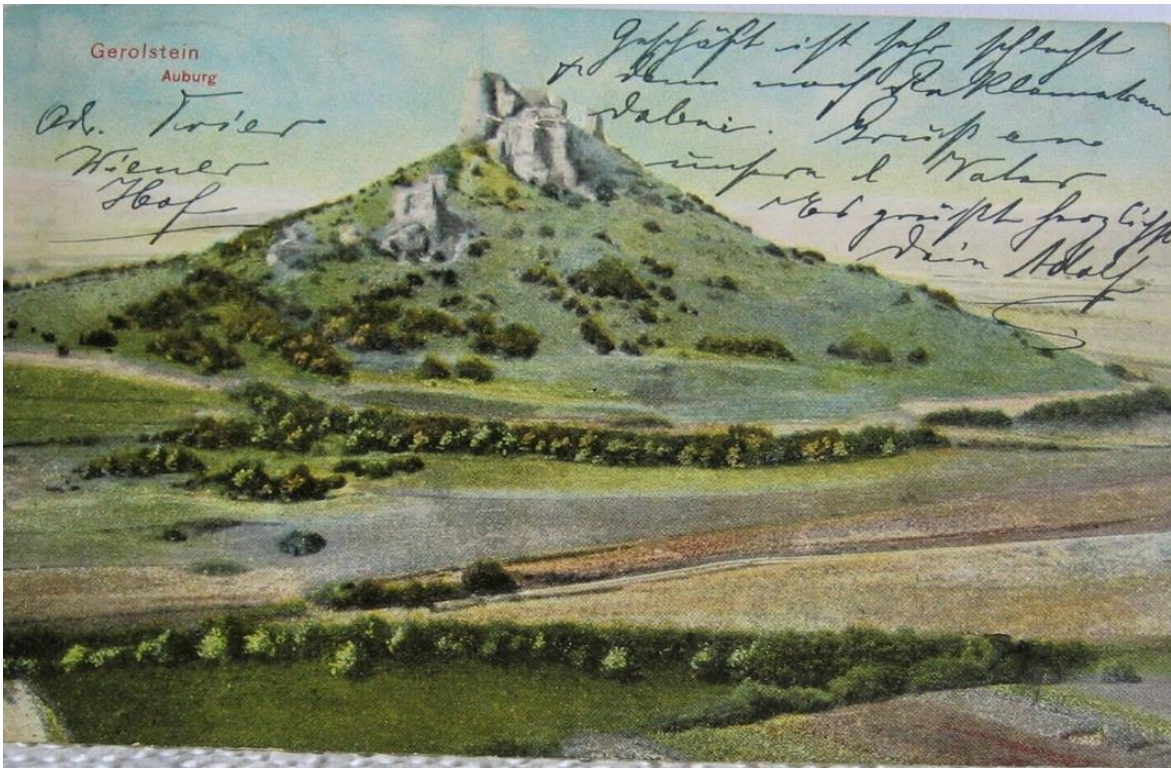 Gerolstein
Auburg
Adr. Trier
Wiener
Hof
Geschäft ist sehr schlecht
& dann noch Reklamationen
dabei. Gruß an
unsern l Vater
Es grüßt herzlichst
Dein Adolf